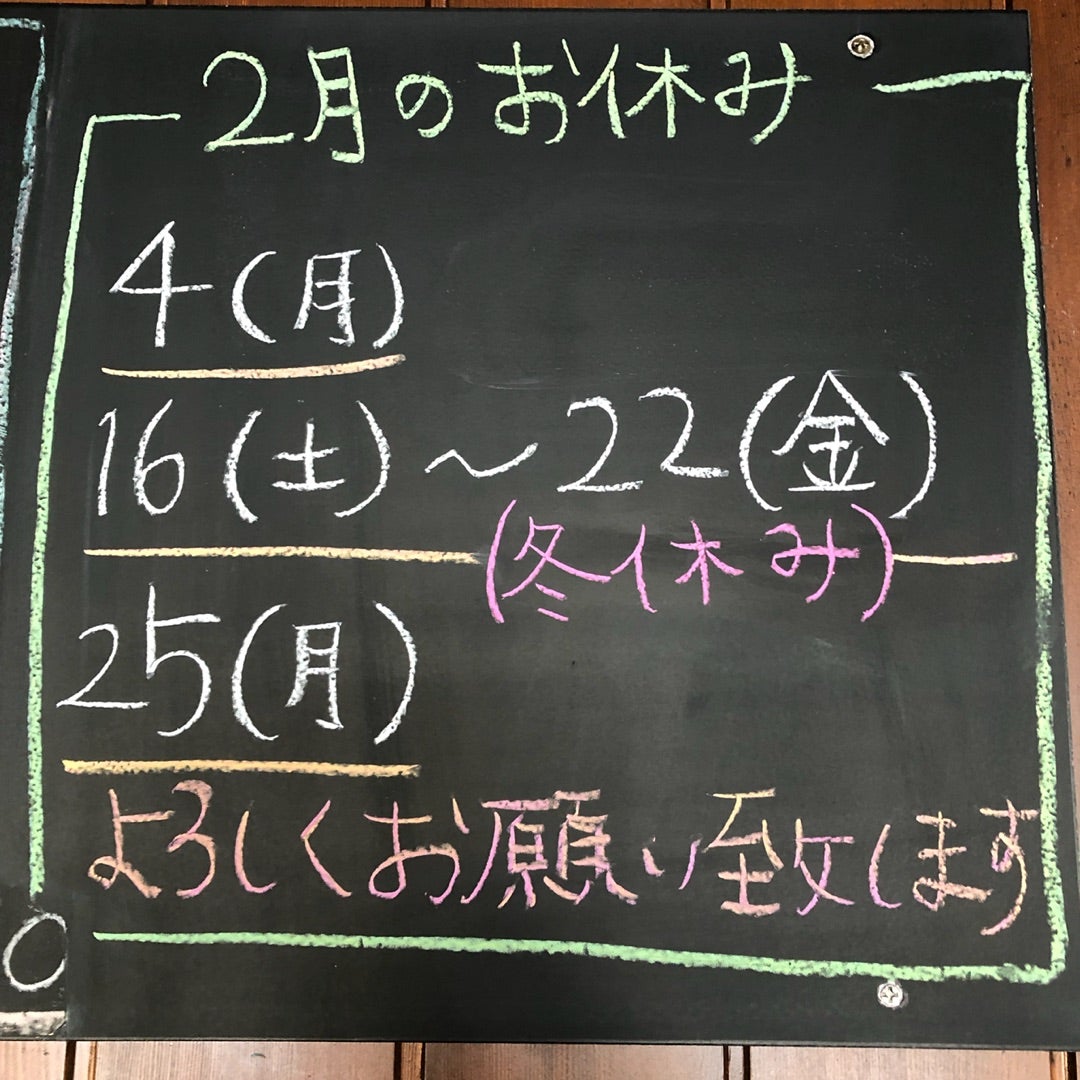 2月のお休み
4(月)
16(土)～22(金)
(冬休み)
25(月)
よろしくお願い致します